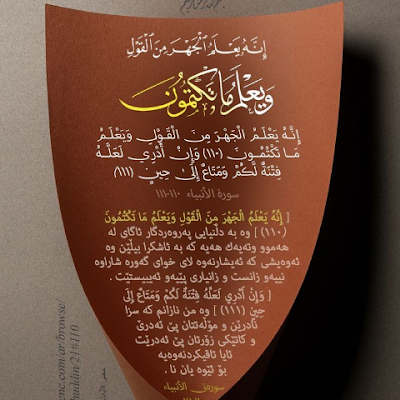 إِنَّهُ يَعْلَمُ الْجَهْرَ مِنَ الْقَوْلِ
وَيَعْلَمُ مَا تَكْتُمُونَ
إِنَّهُ يَعْلَمُ الْجَهْرَ مِنَ الْقَوْلِ وَيَعْلَمُ
مَا تَكْتُمُونَ (١١٠) وَإِنْ أَدْرِي لَعَلَّهُ
فِتْنَةٌ لَكُمْ وَمَتَاعٌ إِلَى حِينٍ (١١١)
سورة الأنبياء ١١٠-١١١
[ إِنَّهُ يَعْلَمُ الْجَهْرَ مِنَ الْقَوْلِ وَيَعْلَمُ مَا تَكْتُمُونَ
(١١٠) ] وە بە دڵنیایی پەروەردگار ئاگای لە
هەموو وتەیەك هەیە كە بە ئاشكرا بیڵێن وە
ئەوەیشی كە ئەیشارنەوە لای خوای گەورە شاراوە
نییەو زانست و زانیاری پێیەو ئەیبیستێت .
[ وَإِنْ أَدْرِي لَعَلَّهُ فِتْنَةٌ لَكُمْ وَمَتَاعٌ إِلَى
حِينٍ (١١١) ] وە من نازانم كە سزا
نادرێن و مۆڵەتتان پێ ئەدرێ
و كاتێكی زۆرتان پێ ئەدرێت
ئایا تاقیكردنەوەیە
بۆ ئێوە یان نا .
سورەتی الأنبیاء
enc.com/ar/browse/
uddin/21#110